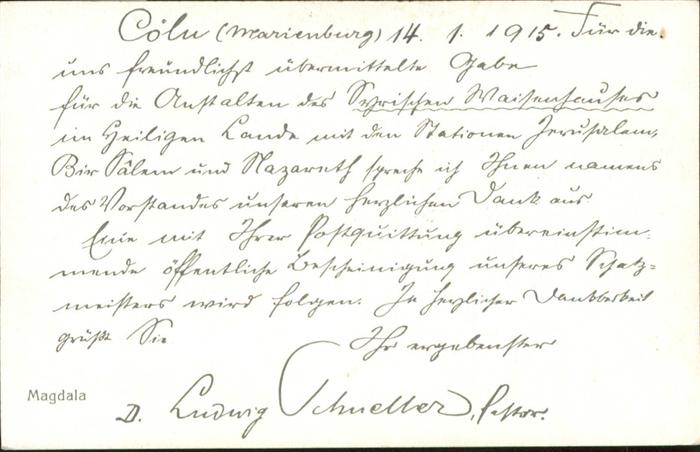 Cöln (Marienburg) 14. 1. 1915. Für die
uns freundlichst übermittelte Gabe
für die Anstalten des Syrischen Waisenhauses
im Heiligen Lande mit den Stationen Jerusalem,
Bir Sâlem und Nazareth spreche ich Ihnen namens
des Vorstandes unseren herzlichen Dank aus
Eine mit Ihrer Postquittung übereinstim-
mende öffentliche Bescheinigung unseres Schatz-
meisters wird folgen. In herzlicher Dankbarkeit
grüßt Sie
Ihr ergebenster
D. Ludwig Schneller, Pastor.
Magdala